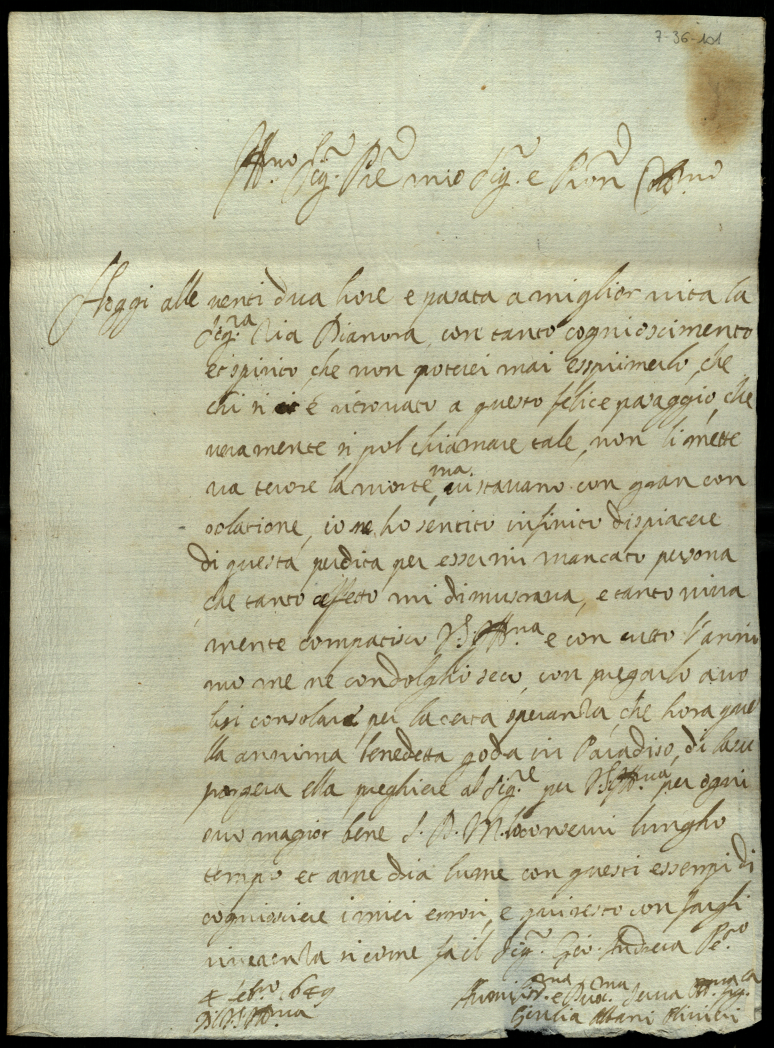 7-36-101
Ill.mo Sig.r P̃re mio Sig.r e P̃ron Col.mo
Hoggi alle venti dua hore e pasata a miglior vita la
Sig.ra Zia Dianora, con tanto cognioscimento
et spirito, che non poterei mai esprimerlo, che
chi si è ritrovato a questo felice pasaggio, che
veramente si pol chiamare tale, non li mette
va terore la morte, ma vi stavano con gran con
solatione, io ne ho sentito infinito dispiacere
di questa perdita per essermi mancato persona
che tanto affetto mi dimustrava, e tanto viva
mente compatisco V.S. Ill.ma e con tutto l'anni
mo me ne condolgho seco, con pregarlo a vo
lersi consolare per la certa speranza, che hora que
lla annima benedetta goda in Paradiso, di la su
porgera ella preghiere al Sig.re per V.S. Ill.ma per ogni
suo magior bene S. D. M. lo conservi lungho
tempo et a me dia lume con questi essempi di
cogniosciere i miei errori, e qui resto con fargli
riverenza si come fa il Sig.r Gio. Andrea
4 febr.o 649
Di V.S. Ill.ma
Humiliss.ma e Devot.ma Serva
Giulia Albani Olivieri